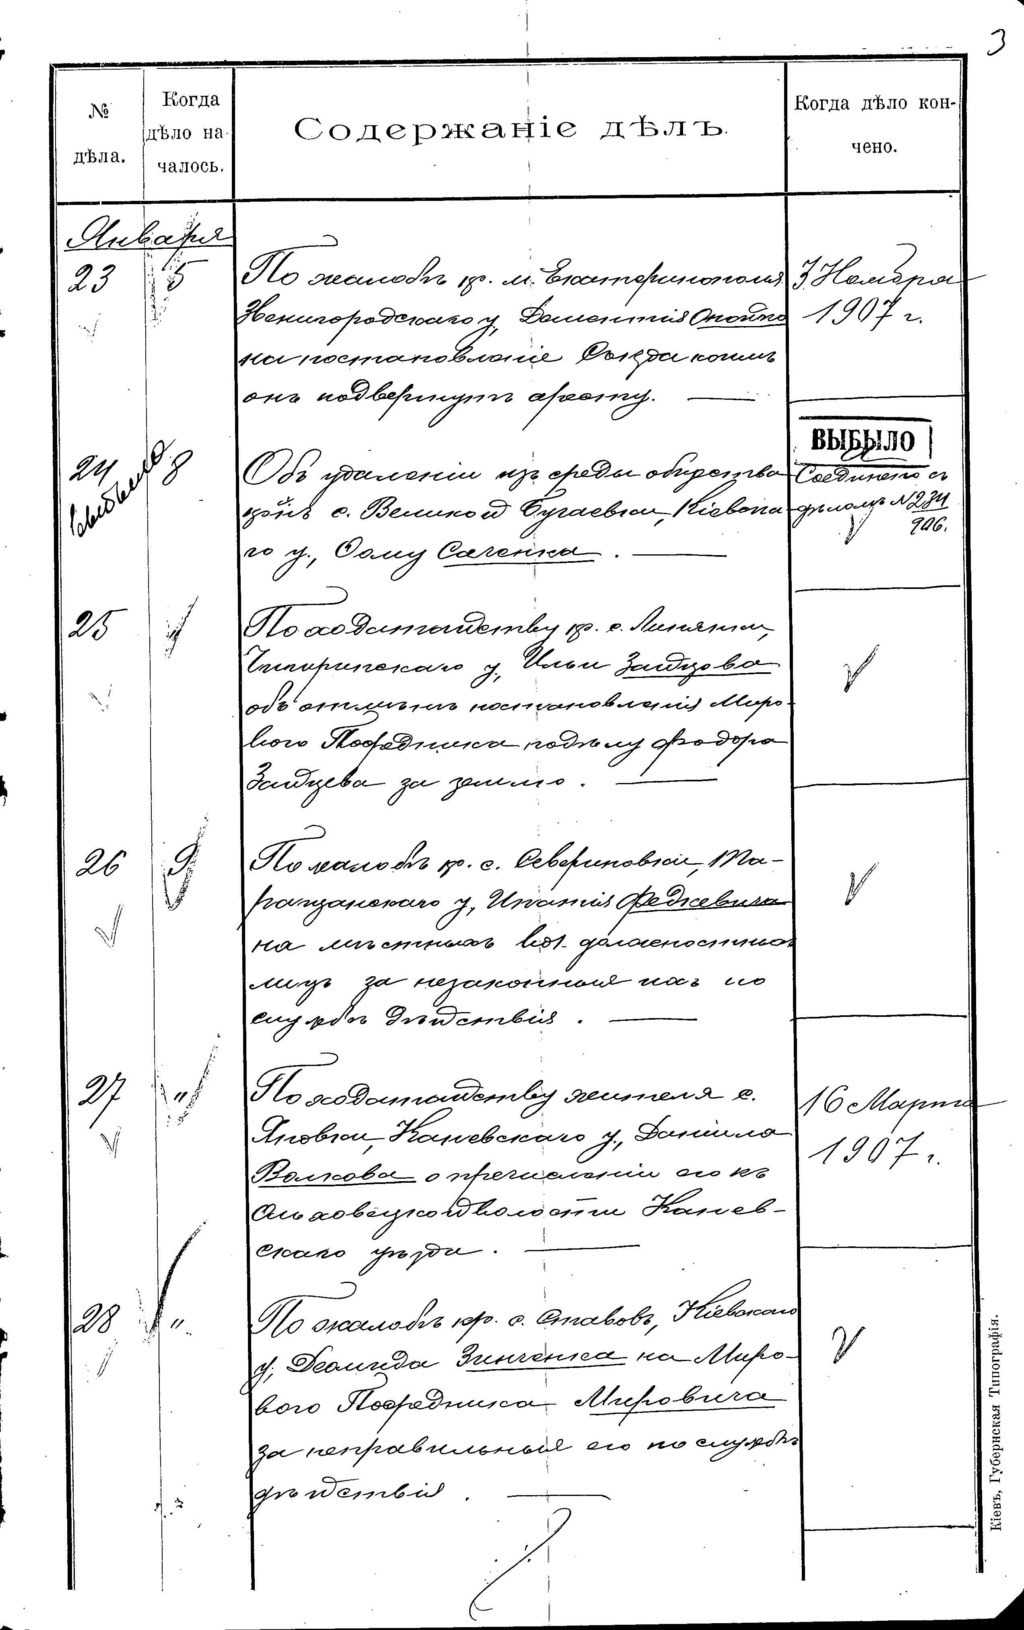 3
№ дѣла.
Когда дѣло на-
чалось.
Содержаніе дѣлъ.
Когда дѣло кон-
чено.
Января
23 5 По жалобѣ кр. м. Екатеринополя 3 Ноября
Звенигородскаго у, Дементія 1907 г.
на постановленіе Съѣзда коимъ
онъ подвергнутъ аресту.
24 8 Объ удаленіи изъ среды общества ВЫБЫЛО
выбыло
Соединено съ
кр-нъ с. Великой Бугаевки, Кіевска- дѣломъ №234
906.
го у., Фому Саченка.
25 По ходатайству кр. с. Липянки,
Чигиринскаго у, Ильи Зайцева
объ отмѣнѣ постановленія Миро-
вого Посредника по дѣлу Феодора
Зайцева за землю.
26 9 По жалобѣ кр. с. Севериновки, Та-
ращанскаго у, Игнатія Федкевича
на мѣстныхъ вол. должностныхъ
лицъ за незаконныя ихъ по
службѣ дѣйствія.
27 " По ходатайству жителя с. 16 Марта
Яновки, Каневскаго у., Даніила 1907 г.
Волкова о пречисленіи его къ
Ольховецкой волости Канев-
скаго уѣзда.
28 " По жалобѣ кр. с. Ставовъ, Кіевскаго
у, Леонида Зинченка на Миро-
вого Посредника Мировича
за неправильныя его по службѣ
дѣйствія.
Кіевъ, Губернская Типографія.